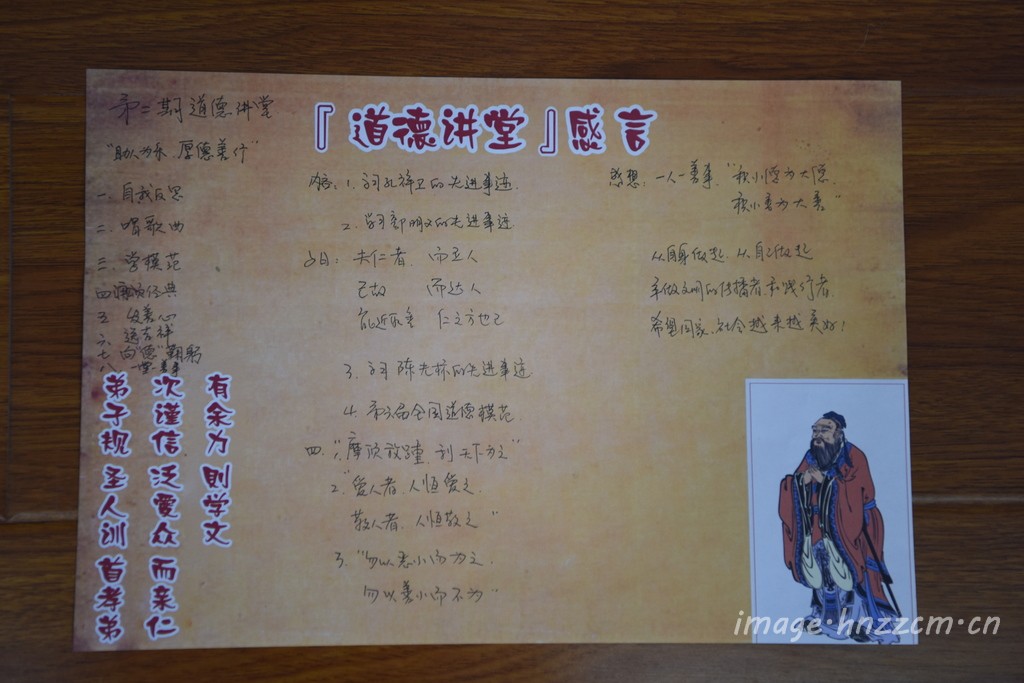 『道德讲堂』感言
第二期道德讲堂
"助人为乐 厚德善行"
一、自我反思
二、唱歌曲
三、学模范
四、诵经典
五、发善心
六、送吉祥
七、向"德"鞠躬
八、一堂善事
内容:1、学习孔祥卫的先进事迹.
2、学习郭明义的先进事迹
曰:夫仁者 而立人
己欲 而达人
能近取 仁之方也已
3、学习陈光标的先进事迹
4、第六届全国道德模范
四、1."摩顶放踵 利天下为之"
2."爱人者、人恒爱之.
敬人者、人恒敬之"
3、"勿以恶小而为之.
勿以善小而不为"
感想:一人一善事、"积小德为大德
积小善为大善"
从自身做起、从自己做起
争做文明的传播者和践行者
希望国家、社会越来越美好!
弟子规 圣人训 首孝弟
次谨信 泛爱众 而亲仁
有余力 则学文
image.hnzzcm.cn